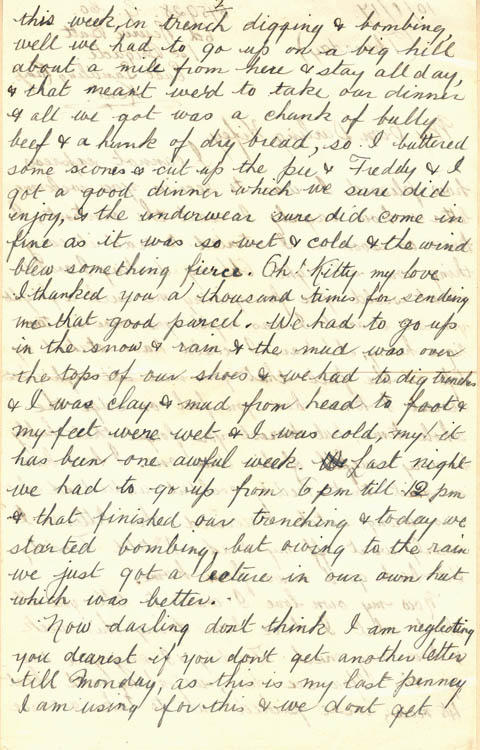 2
this week, in trench digging & bombing,
well we had to go up on a big hill
about a mile from here & stay all day,
& that meant we'd to take our dinner
& all we got was a chunk of bully
beef & a hunk of dry bread, so I buttered
some scones & cut up the pie & Freddy & I
got a good dinner which we sure did
enjoy, & the underwear sure did come in
fine as it was so wet & cold & the wind
blew something fierce. Oh! Kitty my love
I thanked you a thousand times for sending
me that good parcel. We had to go up
in the snow & rain & the mud was over
the tops of our shoes & we had to dig trenches
& I was clay & mud from head to foot &
my feet were wet & I was cold, my! it
has been one awful week. Last night
we had to go up from 6 pm till 12 pm
& that finished our trenching & today we
started bombing, but owing to the rain
we just got a lecture in our own hut
which was better.
Now darling don't think I am neglecting
you dearest if you don't get another letter
till Monday, as this is my last penney
I am using for this & we don't get